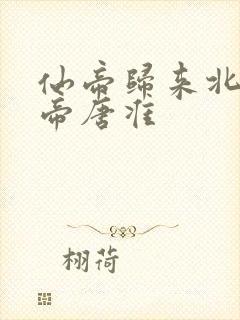 仙帝歸來北
帝唐淮
栩荷